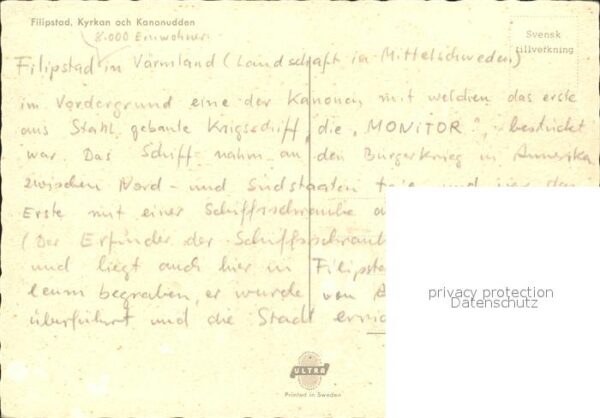 Filipstad, Kyrkan och Kanonudden
8.000 Einwohner
Svensk
tillverkning
Filipstad in Värmland (Landschaft in Mittelschweden)
im Vordergrund eine der Kanonen mit welchen das erste
aus Stahl gebaute Krigsschiff, die „MONITOR", bestückt
war. Das Schiff nahm an den Bürgerkrieg in Ammerika
zwischen Nord- und Südstaaten teil und war das
Erste mit einer Schiffsschraube
(Der Erfinder der Schiffsschraub
und liegt auch hier in Filipsta
leum begraben, er wurde von
überführt und die Stadt
privacy protection
Datenschutz
ULTRA
Printed in Sweden